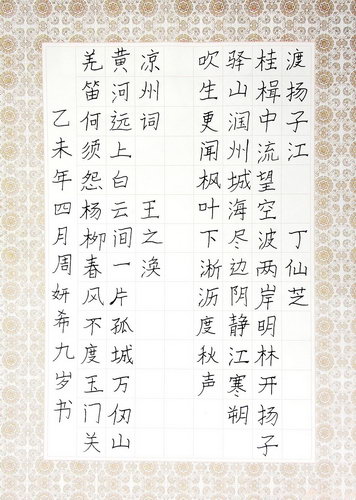 渡扬子江 丁仙芝
桂楫中流望空波两岸明林开扬子
驿山润州城海尽边阴静江寒朔
吹生更闻枫叶下淅沥度秋声
凉州词 王之涣
黄河远上白云间一片孤城万仞山
羌笛何须怨杨柳春风不度玉门关
乙未年四月周妍希九岁书